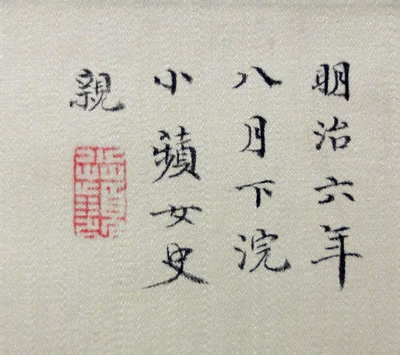 明治六年
八月下浣
小蘋女史
親